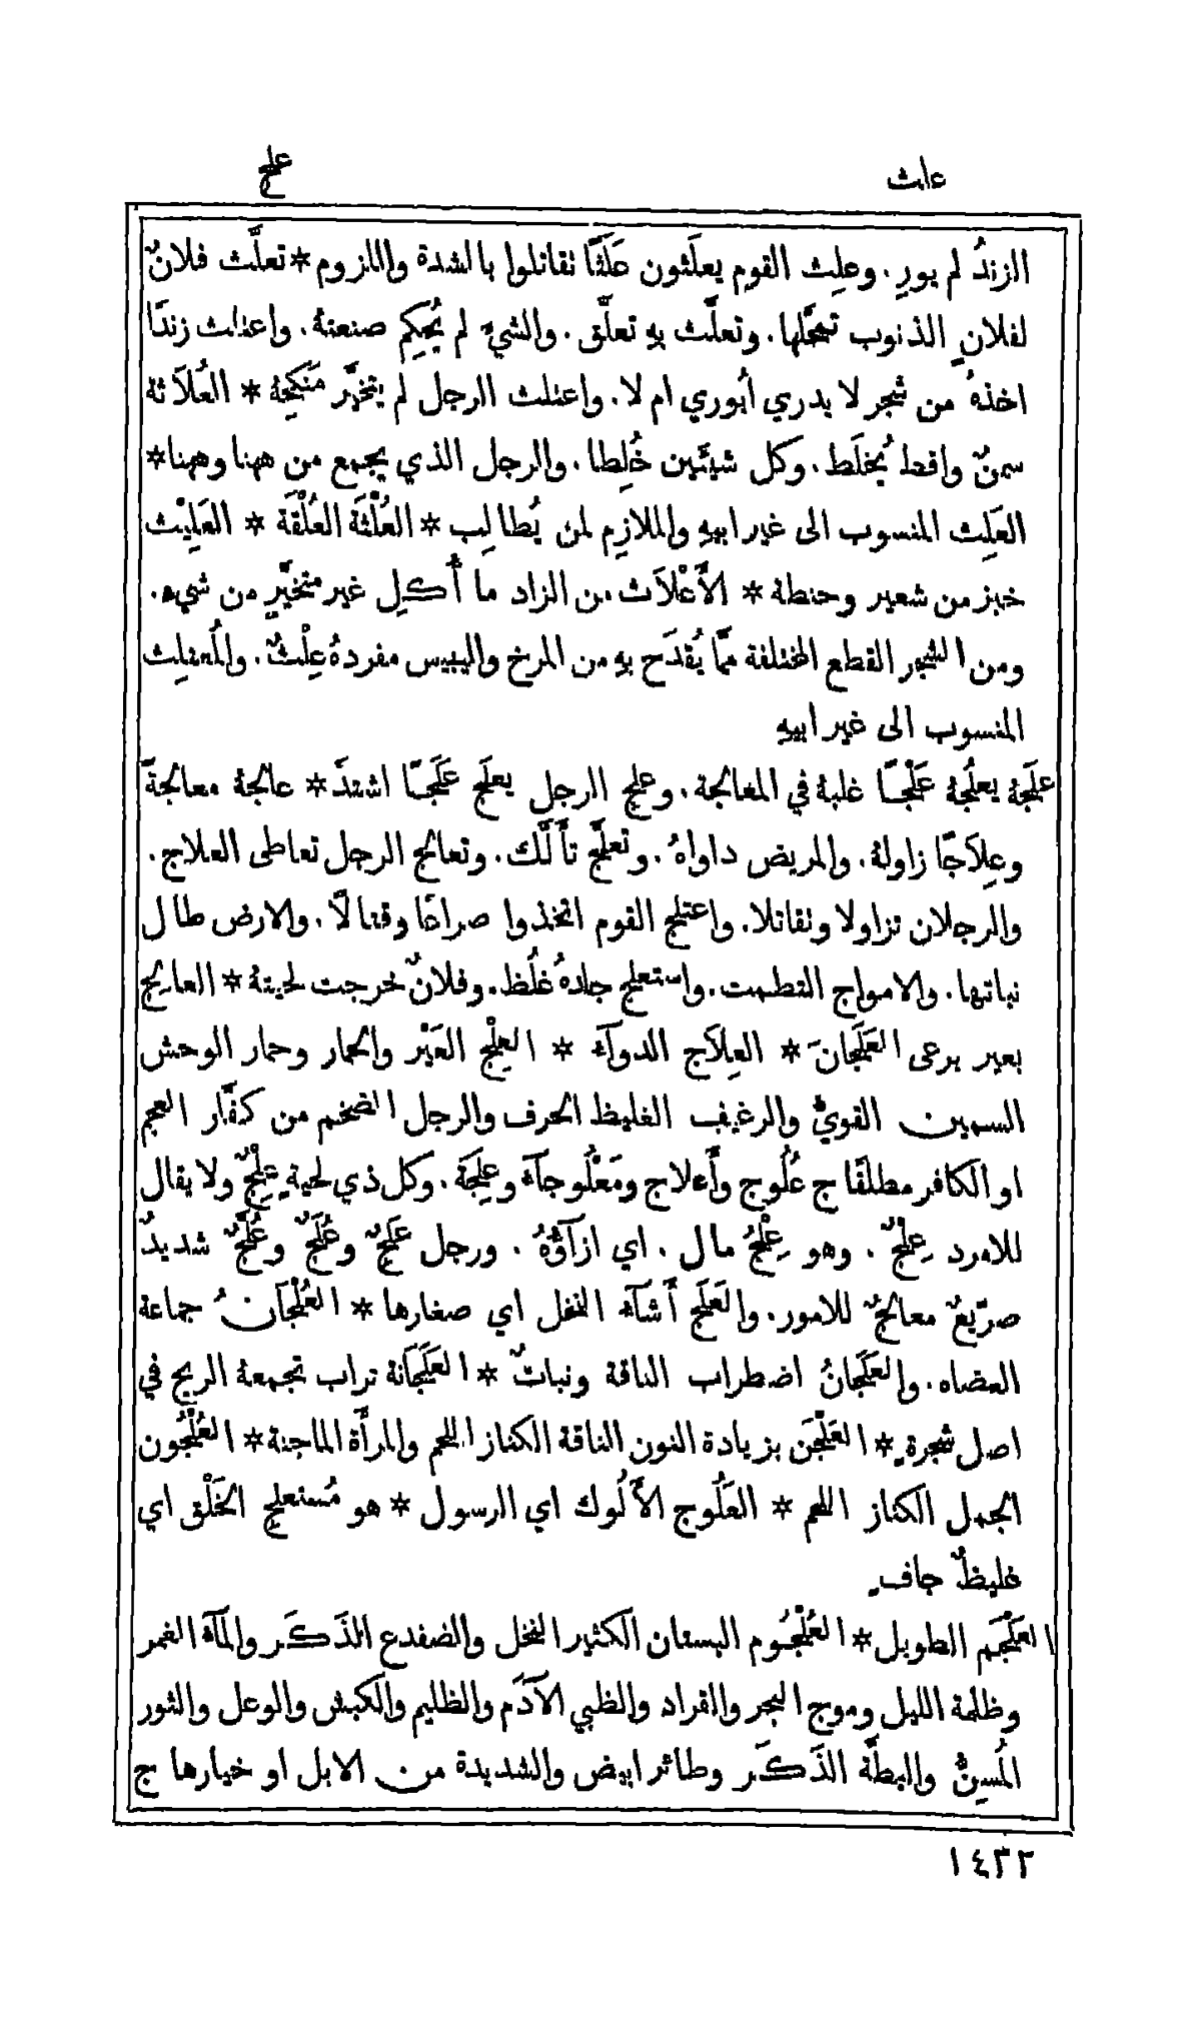 علث
علج
الزندُ لم يورِ. وعلِث القوم يعلَثون عَلَثًا تقاتلوا بالشدة واللزوم * تعلَّث فلانٌ
لفلانٍ الذنوب تمحَّلها. وتعلَّث بهِ تعلَّق. والشيءَ لم يُحكِم صنعتهُ. واعتلث زندًا
اخذهُ من شجر لا يدري أيوري ام لا. واعتلث الرجل لم يتخيَّر مَنكِحهُ * العُلاَثة
سمنٌ واقط يُخلَط. وكل شيئَين خُلِطا. والرجل الذي يجمع من ههنا وههنا *
العَلِث المنسوب الى غير ابيهِ والملازِم لمن يُطالِب * العُلْثَة العُلْقَة * العَلِيْث
خبز من شعير وحنطة * الأَعْلاَث من الزاد ما أُكِل غير متخيَّرٍ من شيء.
ومن الشجر القطع المختلفة ممَّا يُقدَح بهِ من المرخ واليبيس مفردهُ عِلْثٌ. والمُعتلِث
المنسوب الى غير ابيهِ
علَجَهُ يعلُجهُ عَلْجًا غلبهُ في المعالجة. وعلِج الرجل يعلَج عَلَجًا اشتدَّ * عالجهُ معالجةً
وعِلاَجًا زاولهُ. والمريض داواهُ. وتعلَّج تأَلَّك. وتعالج الرجل تعاطى العلاج.
والرجلان تزاولا وتقاتلا. واعتلج القوم اتخذوا صراعًا وقتالاً. والارض طال
نباتها. والامواج التطمت. واستعلج جلدهُ غلُظ. وفلانٌ خرجت لحيتهُ * العالِج
بعير يرعى العَلَجانَ * العِلاَج الدوآء * العِلْج العَيْر والحمار وحمار الوحش
السمين القويُّ والرغيف الغليظ الحرف والرجل الضخم من كفَّار العجم
او الكافر مطلقًا ج عُلُوج وأَعلاج ومَعْلُوجآء وعِلَجَة. وكل ذي لحيةٍ عِلْجٌ ولا يقال
للامرد عِلْجٌ. وهو عِلْجُ مال. اي ازآؤُهُ. ورجل عَلِجٌ وعُلَجٌ وعُلَّجٌ شديدٌ
صرّيعٌ معالجٌ للامور. والعَلَج أَشآء النخل اي صغارها * العُلْجَانُ جماعة
العضاه. والعَلَجَانُ اضطراب الناقة ونباتٌ * العَلَجَانَة تراب تجمعهُ الريح في
اصل شجرةٍ * العَلْجَن بزيادة النون الناقة الكناز اللحم والمرأَة الماجنة * العُلْجُون
الجمل الكناز اللحم * العَلُوج الأَلُوك اي الرسول * هو مُستعلِج الخَلْق اي
غليظٌ جافٍ
العَلْجَم الطويل * العُلْجُوم البستان الكثير النخل والضفدع الذَكَر والمآء الغمر
وظلمة الليل وموج البحر والقراد والظبي الآدَم والظليم والكبش والوعل والثور
المُسِنُّ والبطَّة الذَكَر وطائر ابيض والشديدة من الابل او خيارها ج
١٤٣٢